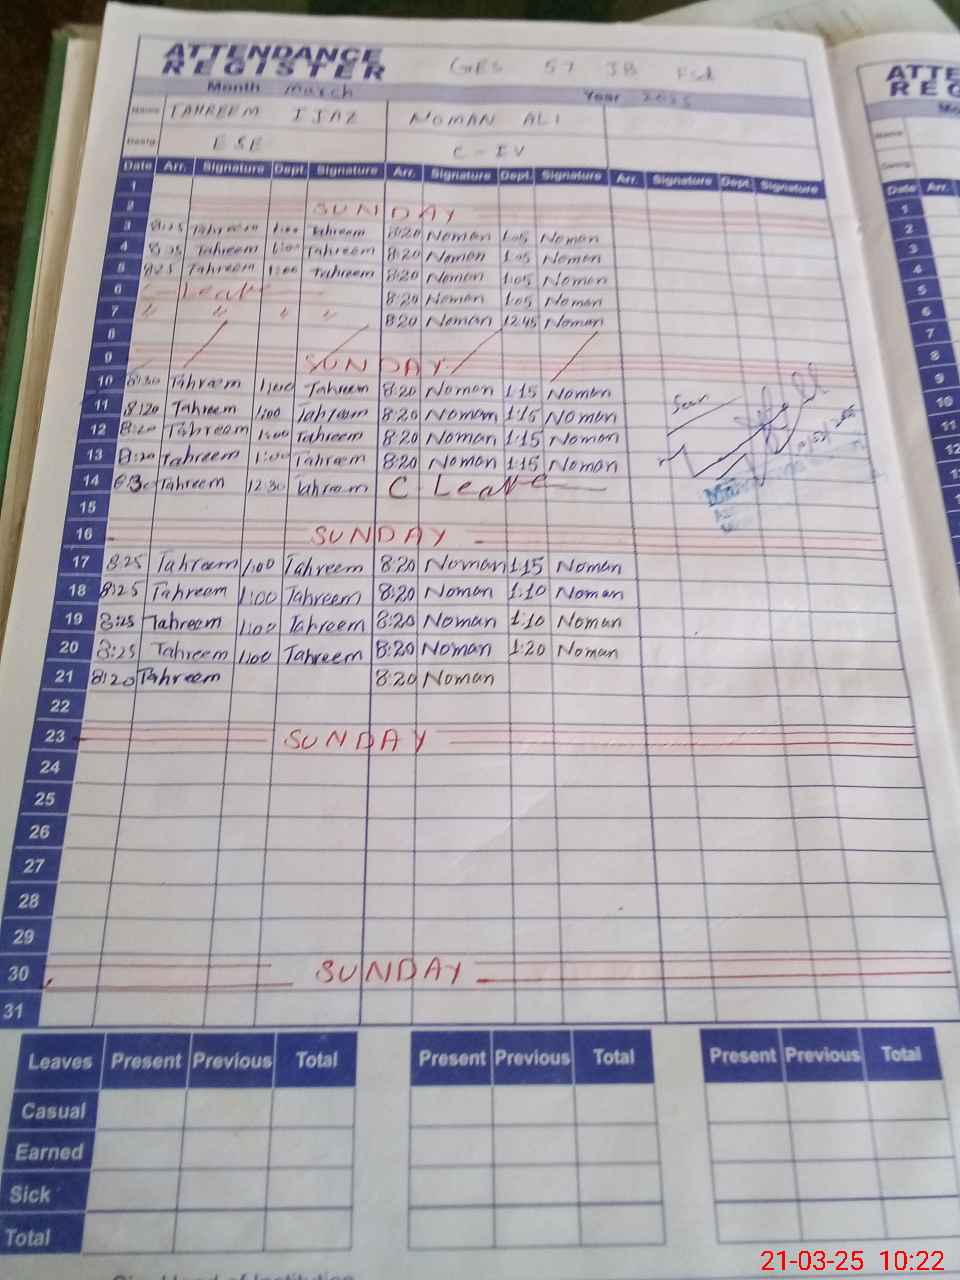 ATTENDANCE REGISTER GES 57 JB Fsd
Month March Year 2025
Name TAHREEM IJAZ NOMAN ALI
Desig. ESE C-IV
Date Arr. Signature Dept. Signature Arr. Signature Dept. Signature Arr. Signature Dept. Signature
1
2 SUNDAY
3 8:25 Tahreem 1:00 Tahreem 8:20 Noman 1:05 Noman
4 8:25 Tahreem 1:00 Tahreem 8:20 Noman 1:05 Noman
5 8:25 Tahreem 1:00 Tahreem 8:20 Noman 1:05 Noman
6 Leave 8:20 Noman 1:05 Noman
7 " " " " 8:20 Noman 12:45 Noman
8
9 SUNDAY
10 8:30 Tahreem 1:00 Tahreem 8:20 Noman 1:15 Noman
11 8:20 Tahreem 1:00 Tahreem 8:20 Noman 1:15 Noman Seen
12 8:20 Tahreem 1:00 Tahreem 8:20 Noman 1:15 Noman
13 8:20 Tahreem 1:00 Tahreem 8:20 Noman 1:15 Noman
14 8:30 Tahreem 12:30 Tahreem C. Leave
15
16 SUNDAY
17 8:25 Tahreem 1:00 Tahreem 8:20 Noman 1:15 Noman
18 8:25 Tahreem 1:00 Tahreem 8:20 Noman 1:10 Noman
19 8:25 Tahreem 1:00 Tahreem 8:20 Noman 1:10 Noman
20 8:25 Tahreem 1:00 Tahreem 8:20 Noman 1:20 Noman
21 8:20 Tahreem 8:20 Noman
22
23 SUNDAY
24
25
26
27
28
29
30 SUNDAY
31
Leaves Present Previous Total Present Previous Total Present Previous Total
Casual
Earned
Sick
Total
ATTE
REG
Name
Desig.
Date Arr.
1
2
3
4
5
6
7
8
9
10
11
12
21-03-25 10:22